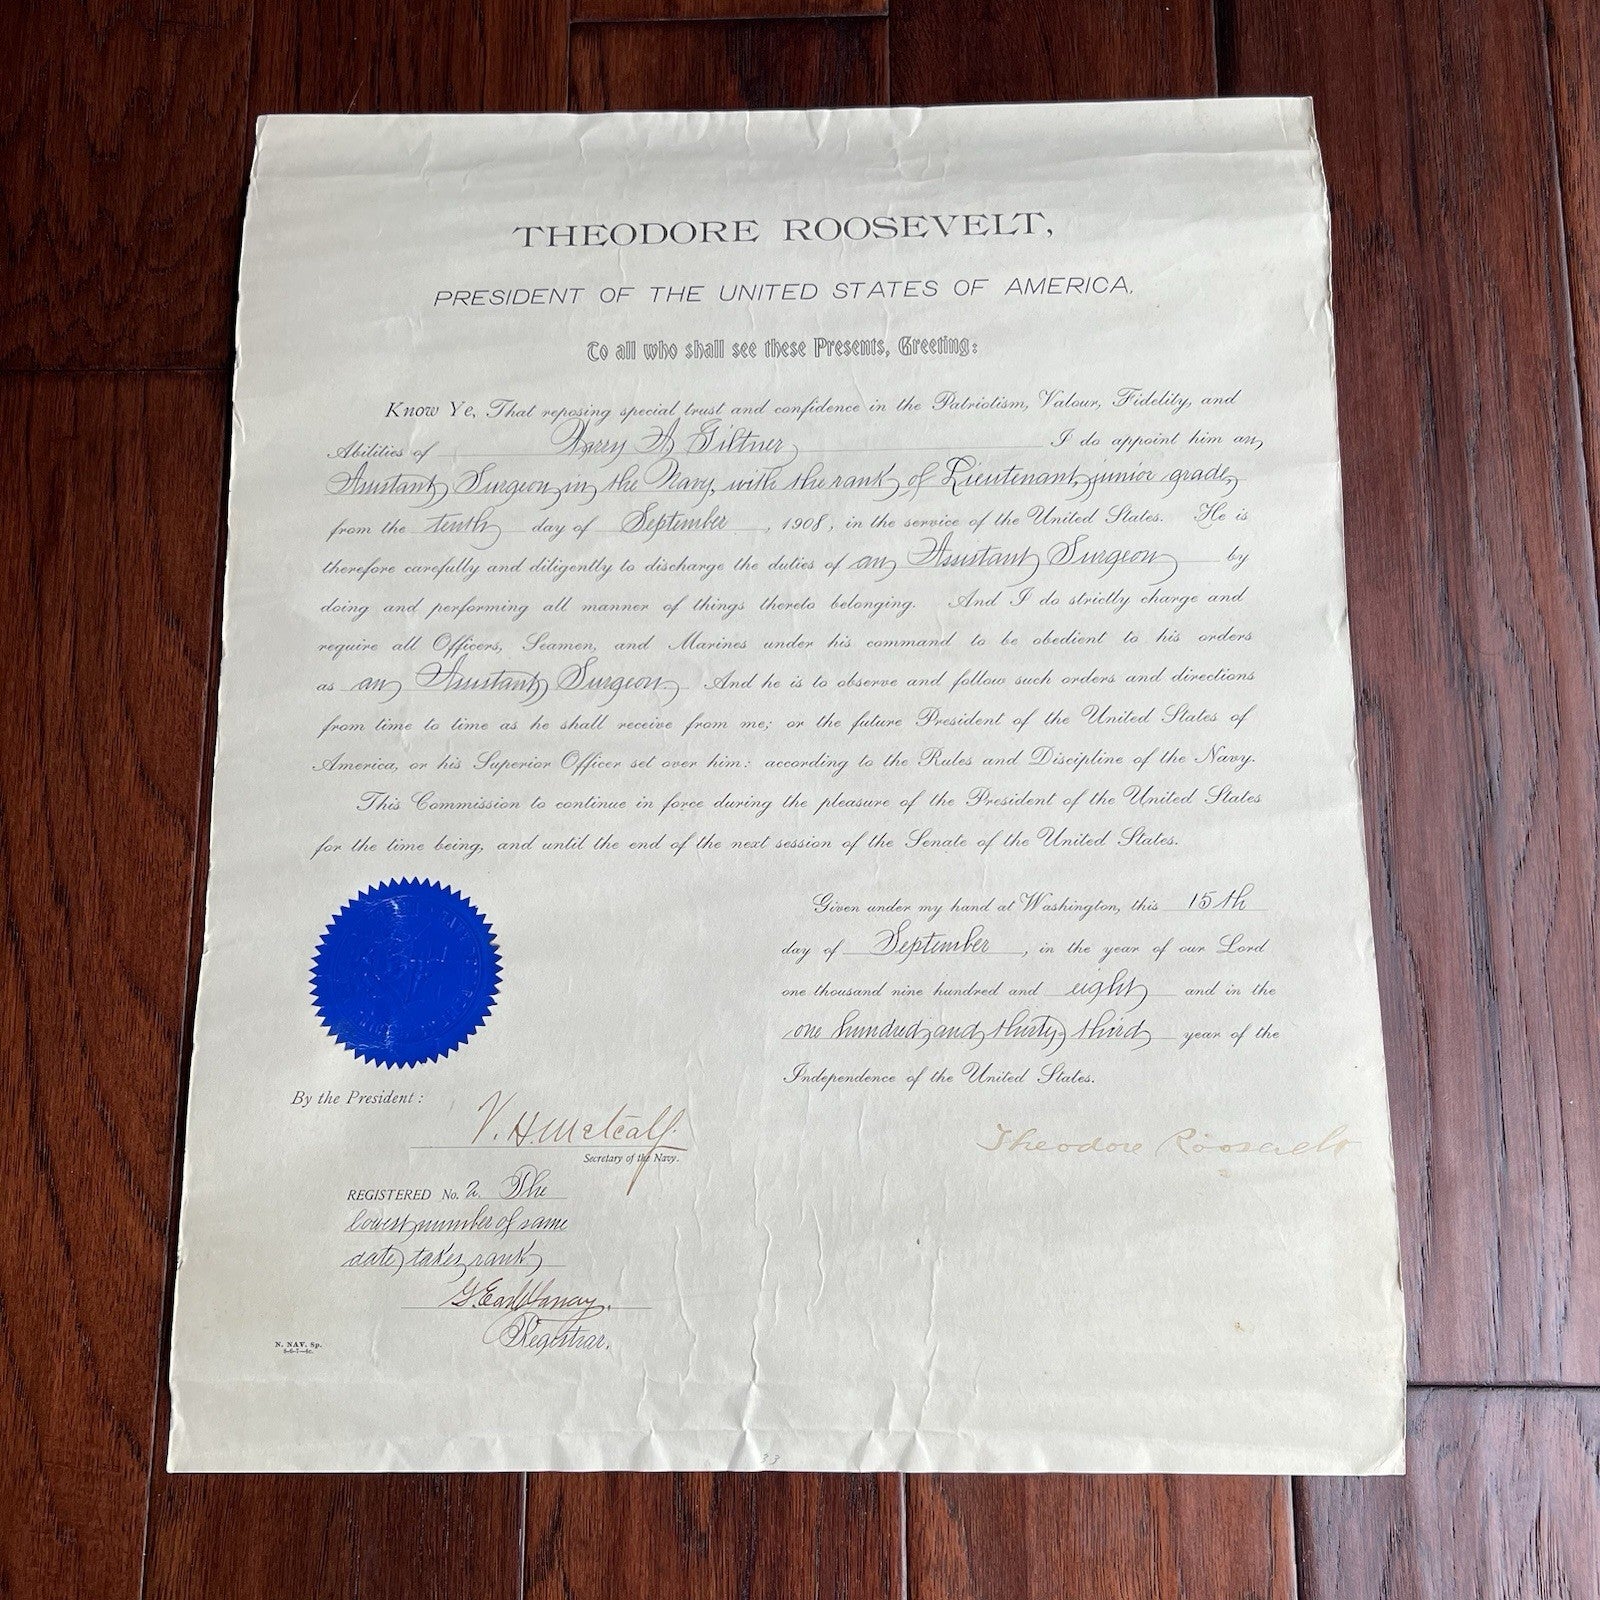 THEODORE ROOSEVELT,
PRESIDENT OF THE UNITED STATES OF AMERICA.
To all who shall see these Presents, Greeting:
Know Ye, That reposing special trust and confidence in the Patriotism, Valour, Fidelity, and
Abilities of Harry A. Giltner I do appoint him an
Assistant Surgeon in the Navy, with the rank of Lieutenant, junior grade,
from the tenth day of September, 1908, in the service of the United States. He is
therefore carefully and diligently to discharge the duties of an Assistant Surgeon by
doing and performing all manner of things thereto belonging. And I do strictly charge and
require all Officers, Seamen, and Marines under his command to be obedient to his orders
as an Assistant Surgeon. And he is to observe and follow such orders and directions
from time to time as he shall receive from me; or the future President of the United States of
America, or his Superior Officer set over him: according to the Rules and Discipline of the Navy.
This Commission to continue in force during the pleasure of the President of the United States
for the time being, and until the end of the next session of the Senate of the United States.
Given under my hand at Washington, this 15th
day of September, in the year of our Lord
one thousand nine hundred and eight and in the
one hundred and thirty third year of the
Independence of the United States.
By the President:
V. H. Metcalf.
Secretary of the Navy.
Theodore Roosevelt
REGISTERED No. 2. The
lowest number of same
date takes rank
G. Earl
Registrar.
N. NAV. Sp.
33